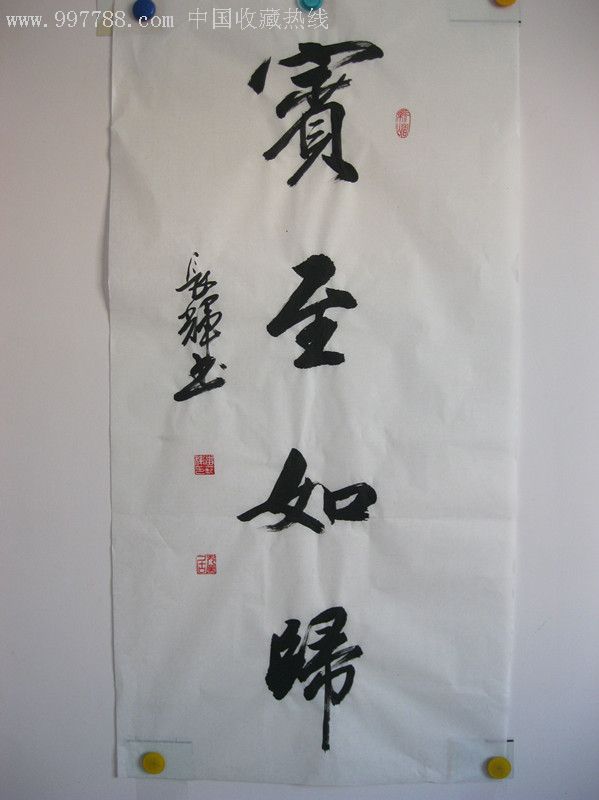 www.997788.com 中国收藏热线
賓至如歸
長輝书